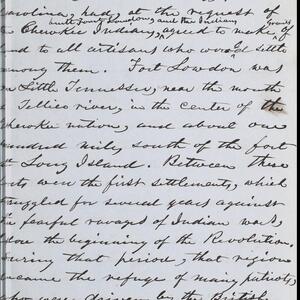 Carolina, had, at the request of
built Fort Loudon, and the Indian grants of
the Cherokee Indians, agreed to make
land to all artisans who would settle
among them. Fort Lowdon was
on Little Tennessee, near the mouth
Tellico river, in the center of the
Cherokee nation, and about one
hundred miles south of the fort
at Long Island. Between these
forts were the first settlements, which
struggled for several years against
the fearful ravages of Indian wars,
before the beginning of the Revolution.
During that period, that region
became the refuge of many patriots,
who were driven by the British